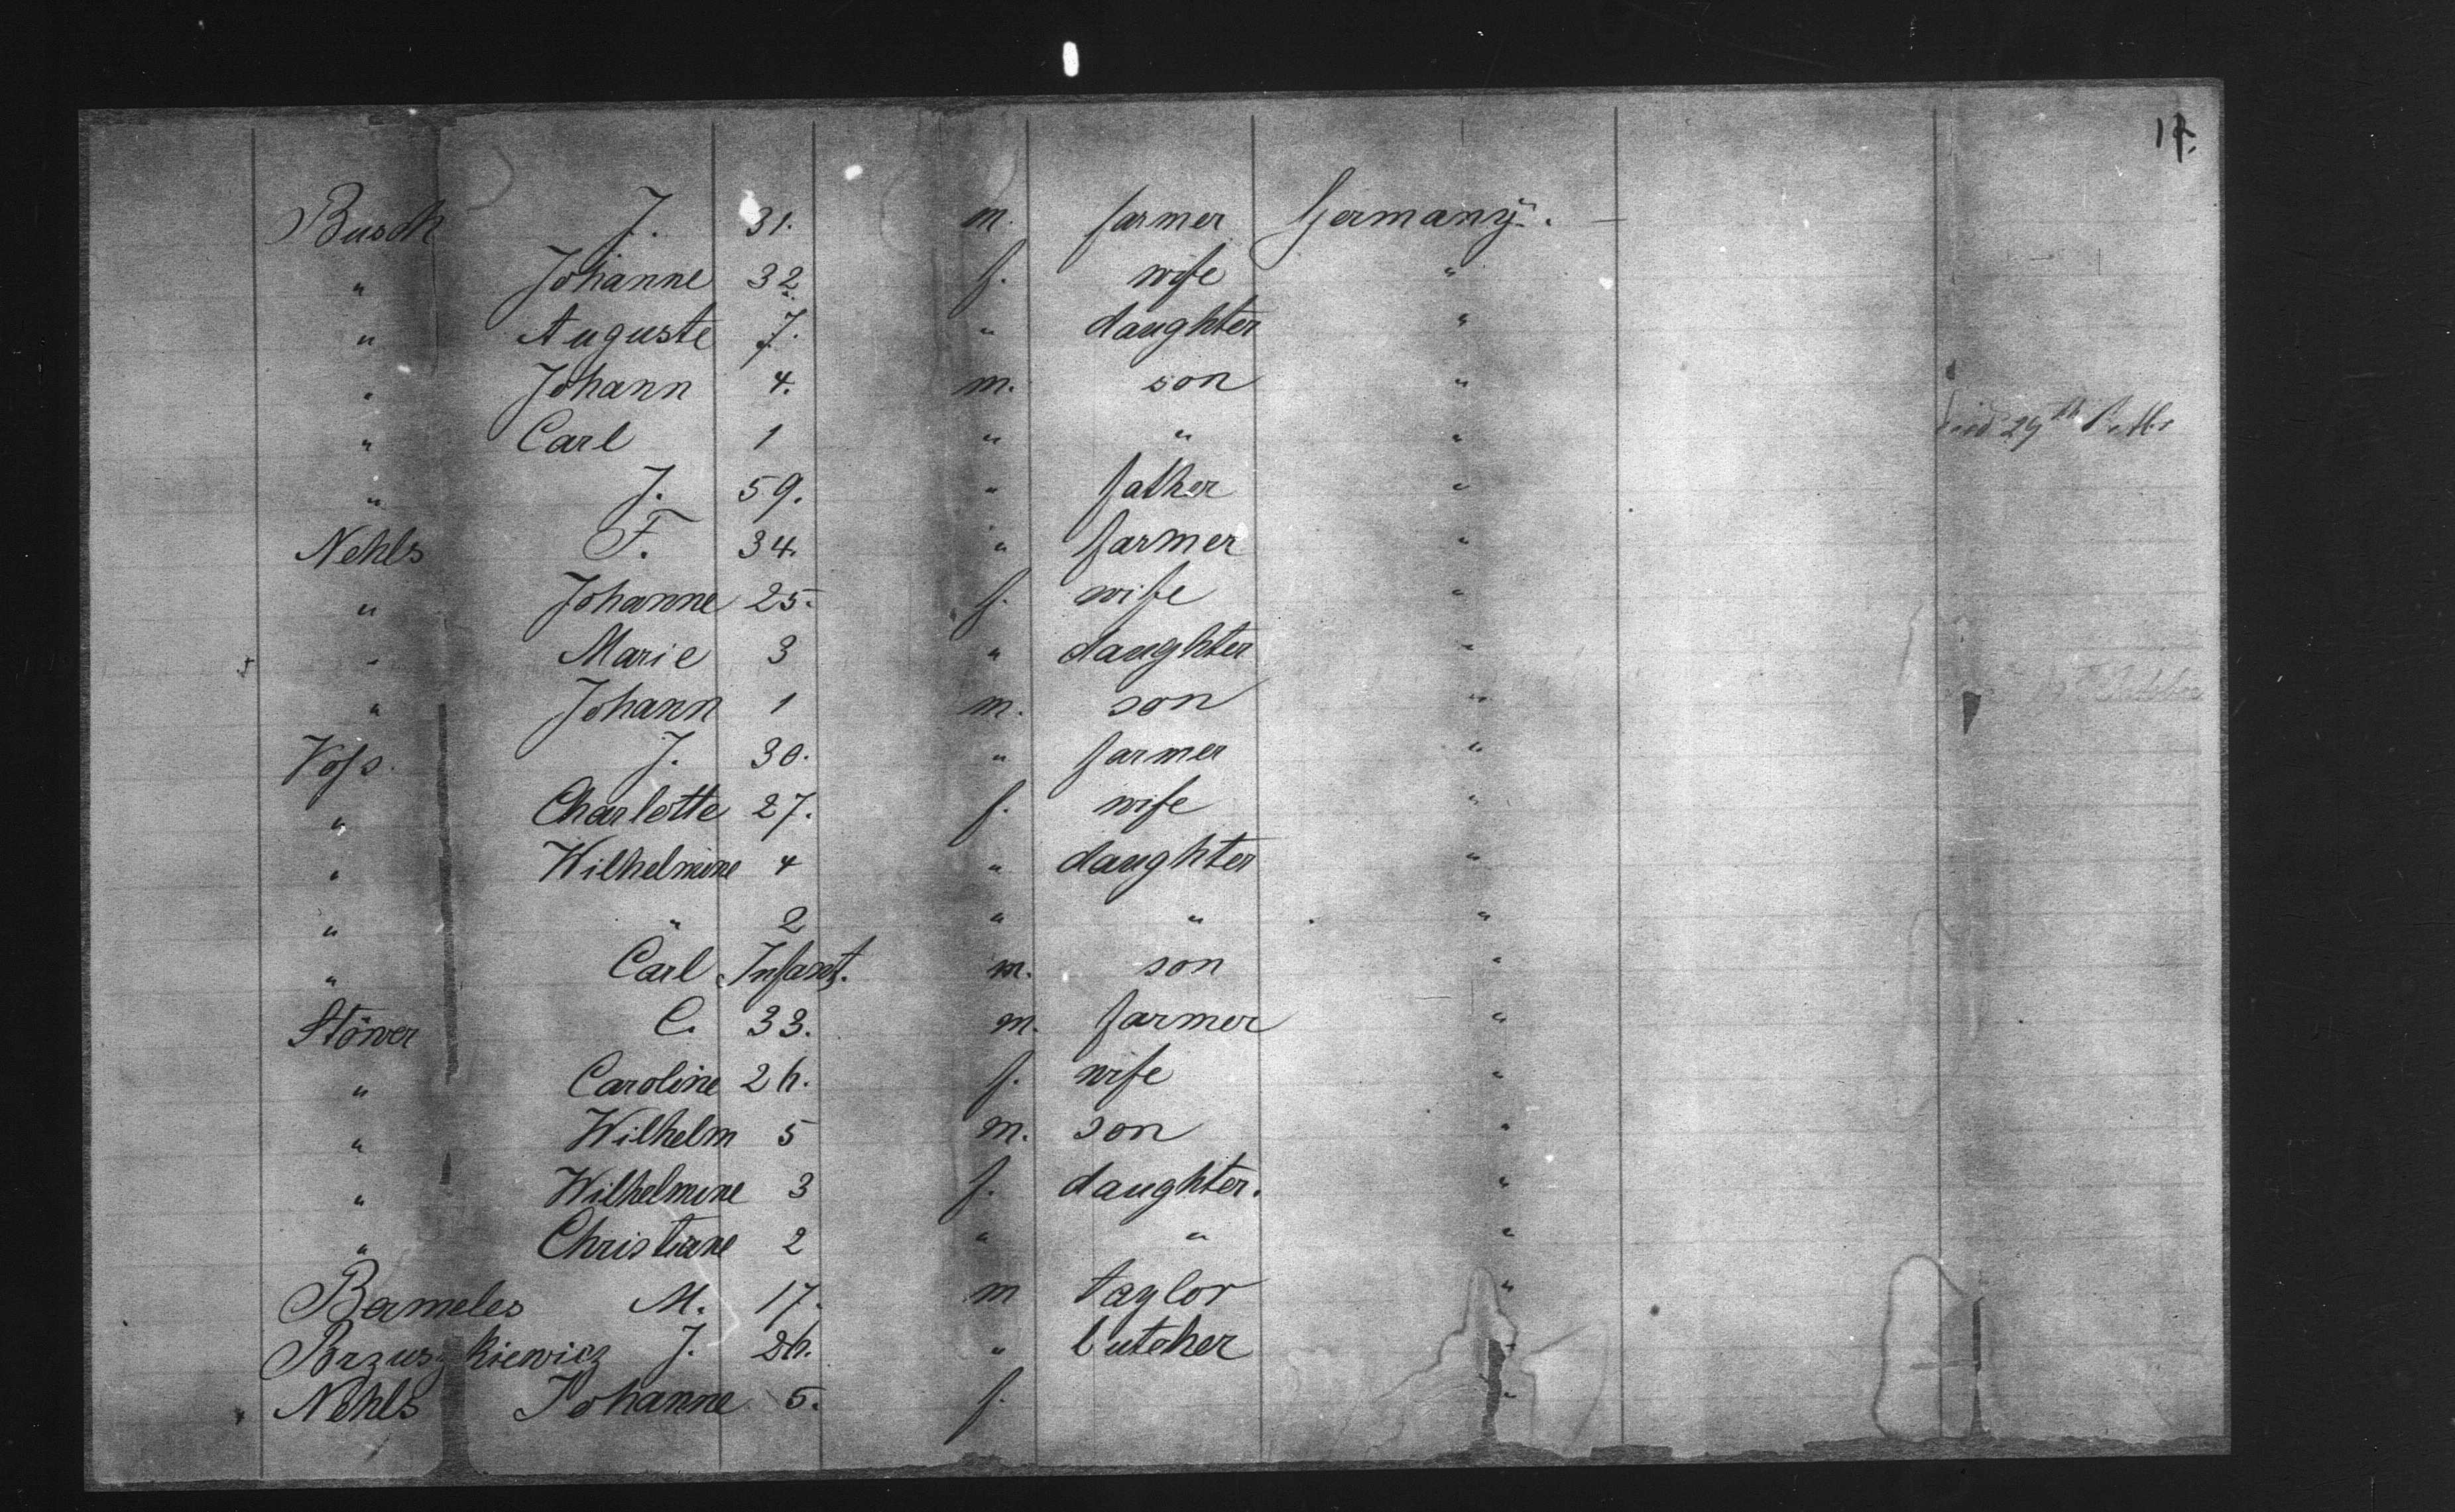 Busch J. 31. m. farmer Germany.
" Johanne 32 f. wife "
" Auguste 7. " daughter "
" Johann 4. m. son "
" Carl 1 " " " 29th
" J. 59. " father "
Nehls F. 34. " farmer "
" Johanne 25. f. wife "
" Marie 3 " daughter "
" Johann 1 m. son "
Voſs. J. 30. " farmer "
" Charlotte 27. f. wife "
" Wilhelmine 4 " daughter "
" " 2 " " "
" Carl Infant. m. son "
Stöwer C. 33. m. farmer "
" Caroline 26. f. wife "
" Wilhelm 5 m. son "
" Wilhelmine 3 f. daughter. "
" Christiane 2 " " "
M. 17. m taylor "
J. 26. " butcher "
Nehls Johanne 5. f. "